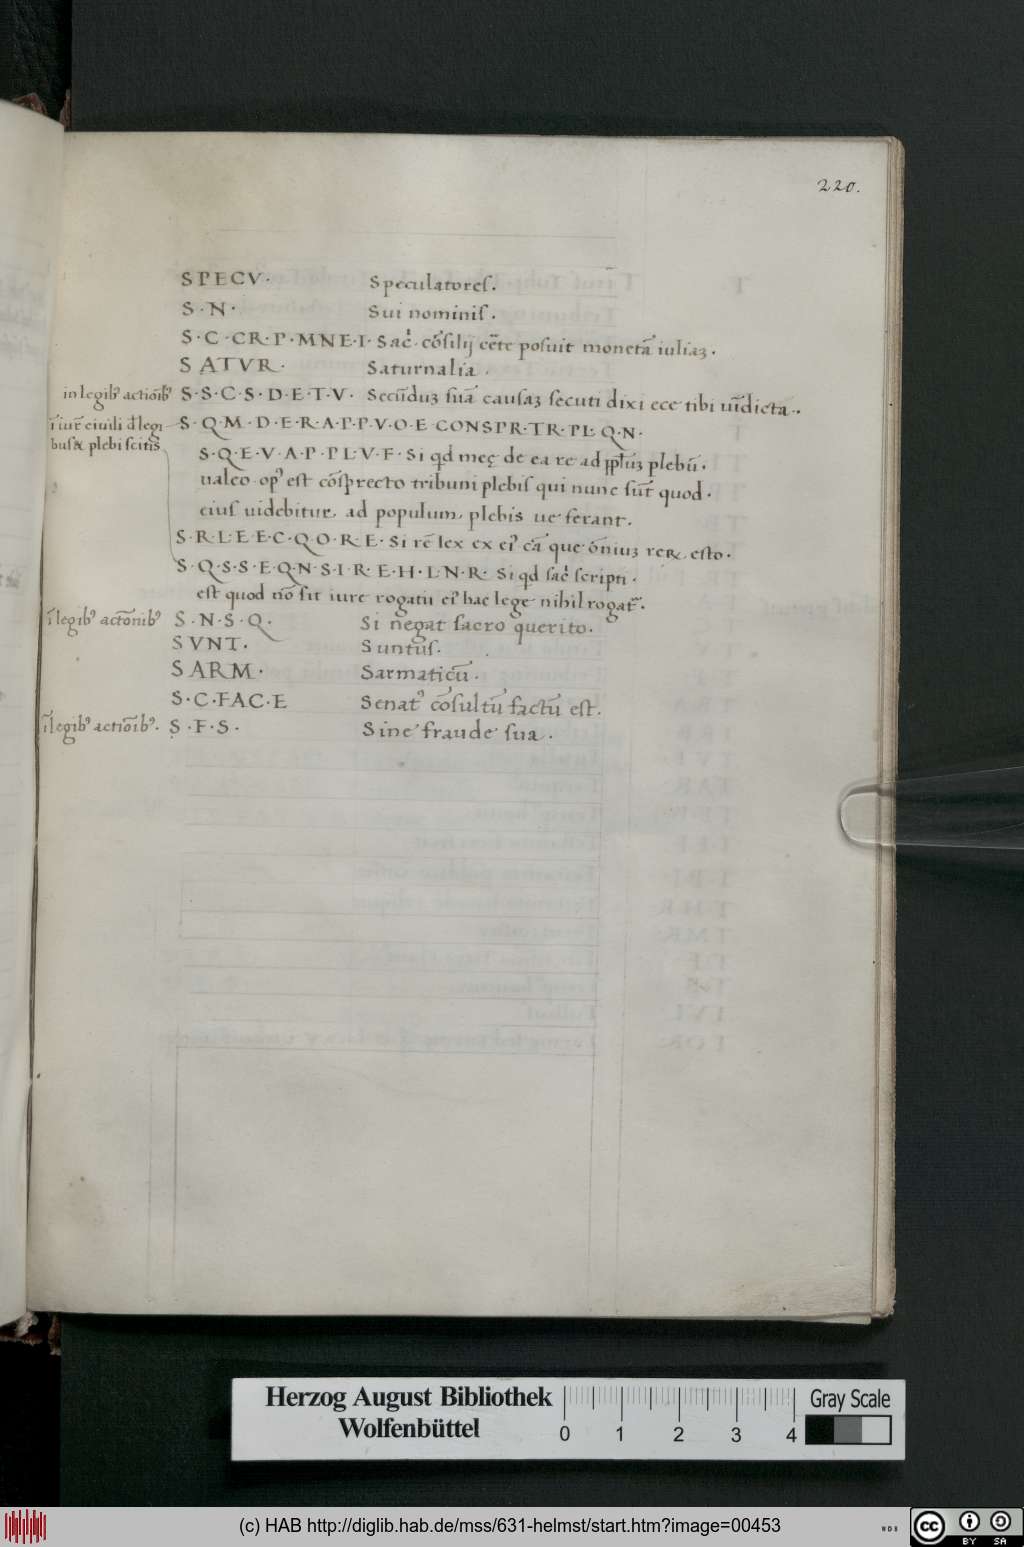 220.
SPECV· Speculatores.
S·N· Sui nominis.
S·C·CR·P·MNE·I· Sac̉. cōsilij cēte posuit monetā iuliaʒ.
SATVR· Saturnalia.
in legibꝰ actiōibꝰ S·S·C·S·D·E·T·V· Secūduʒ suā causaʒ secuti dixi ece tibi uīdicta.
ī iur̄ ciuili d̄ legi S·Q·M·D·E·R·A·P·P·V·O·E CONSPR·TR·PL·Q·N·
bus & plebi scitis S·Q·E·V·A·P·PL·V·F· Si qd meę de ea re ad plebū.
ualeo opꝰ est tribuni plebis qui nunc sūt quod.
eius uidebitur, ad populum, plebis ue ferant.
S·R·L·E·E·C·Q·O·R·E· Si rē lex ex eiꝰ cā que ōniuʒ reꝝ esto.
S·Q·S·S·E·Q·N·S·I·R·E·H·L·N·R· Si qd sac̉ scripti.
est quod nō sit iure rogatū eiꝰ hac lege nihil rogat̄.
ī legibꝰ actōnibꝰ S·N·S·Q· Si negat sacro querito.
SVNT· Suntus.
SARM· Sarmaticū.
S·C·FAC·E Senatꝰ cōsultū factū est.
ī legibꝰ actiōibꝰ. S·F·S· Sine fraude sua.
Herzog August Bibliothek
Wolfenbüttel
0 1 2 3 4
Gray Scale
(c) HAB http://diglib.hab.de/mss/631-helmst/start.htm?image=00453
WDB
cc BY SA